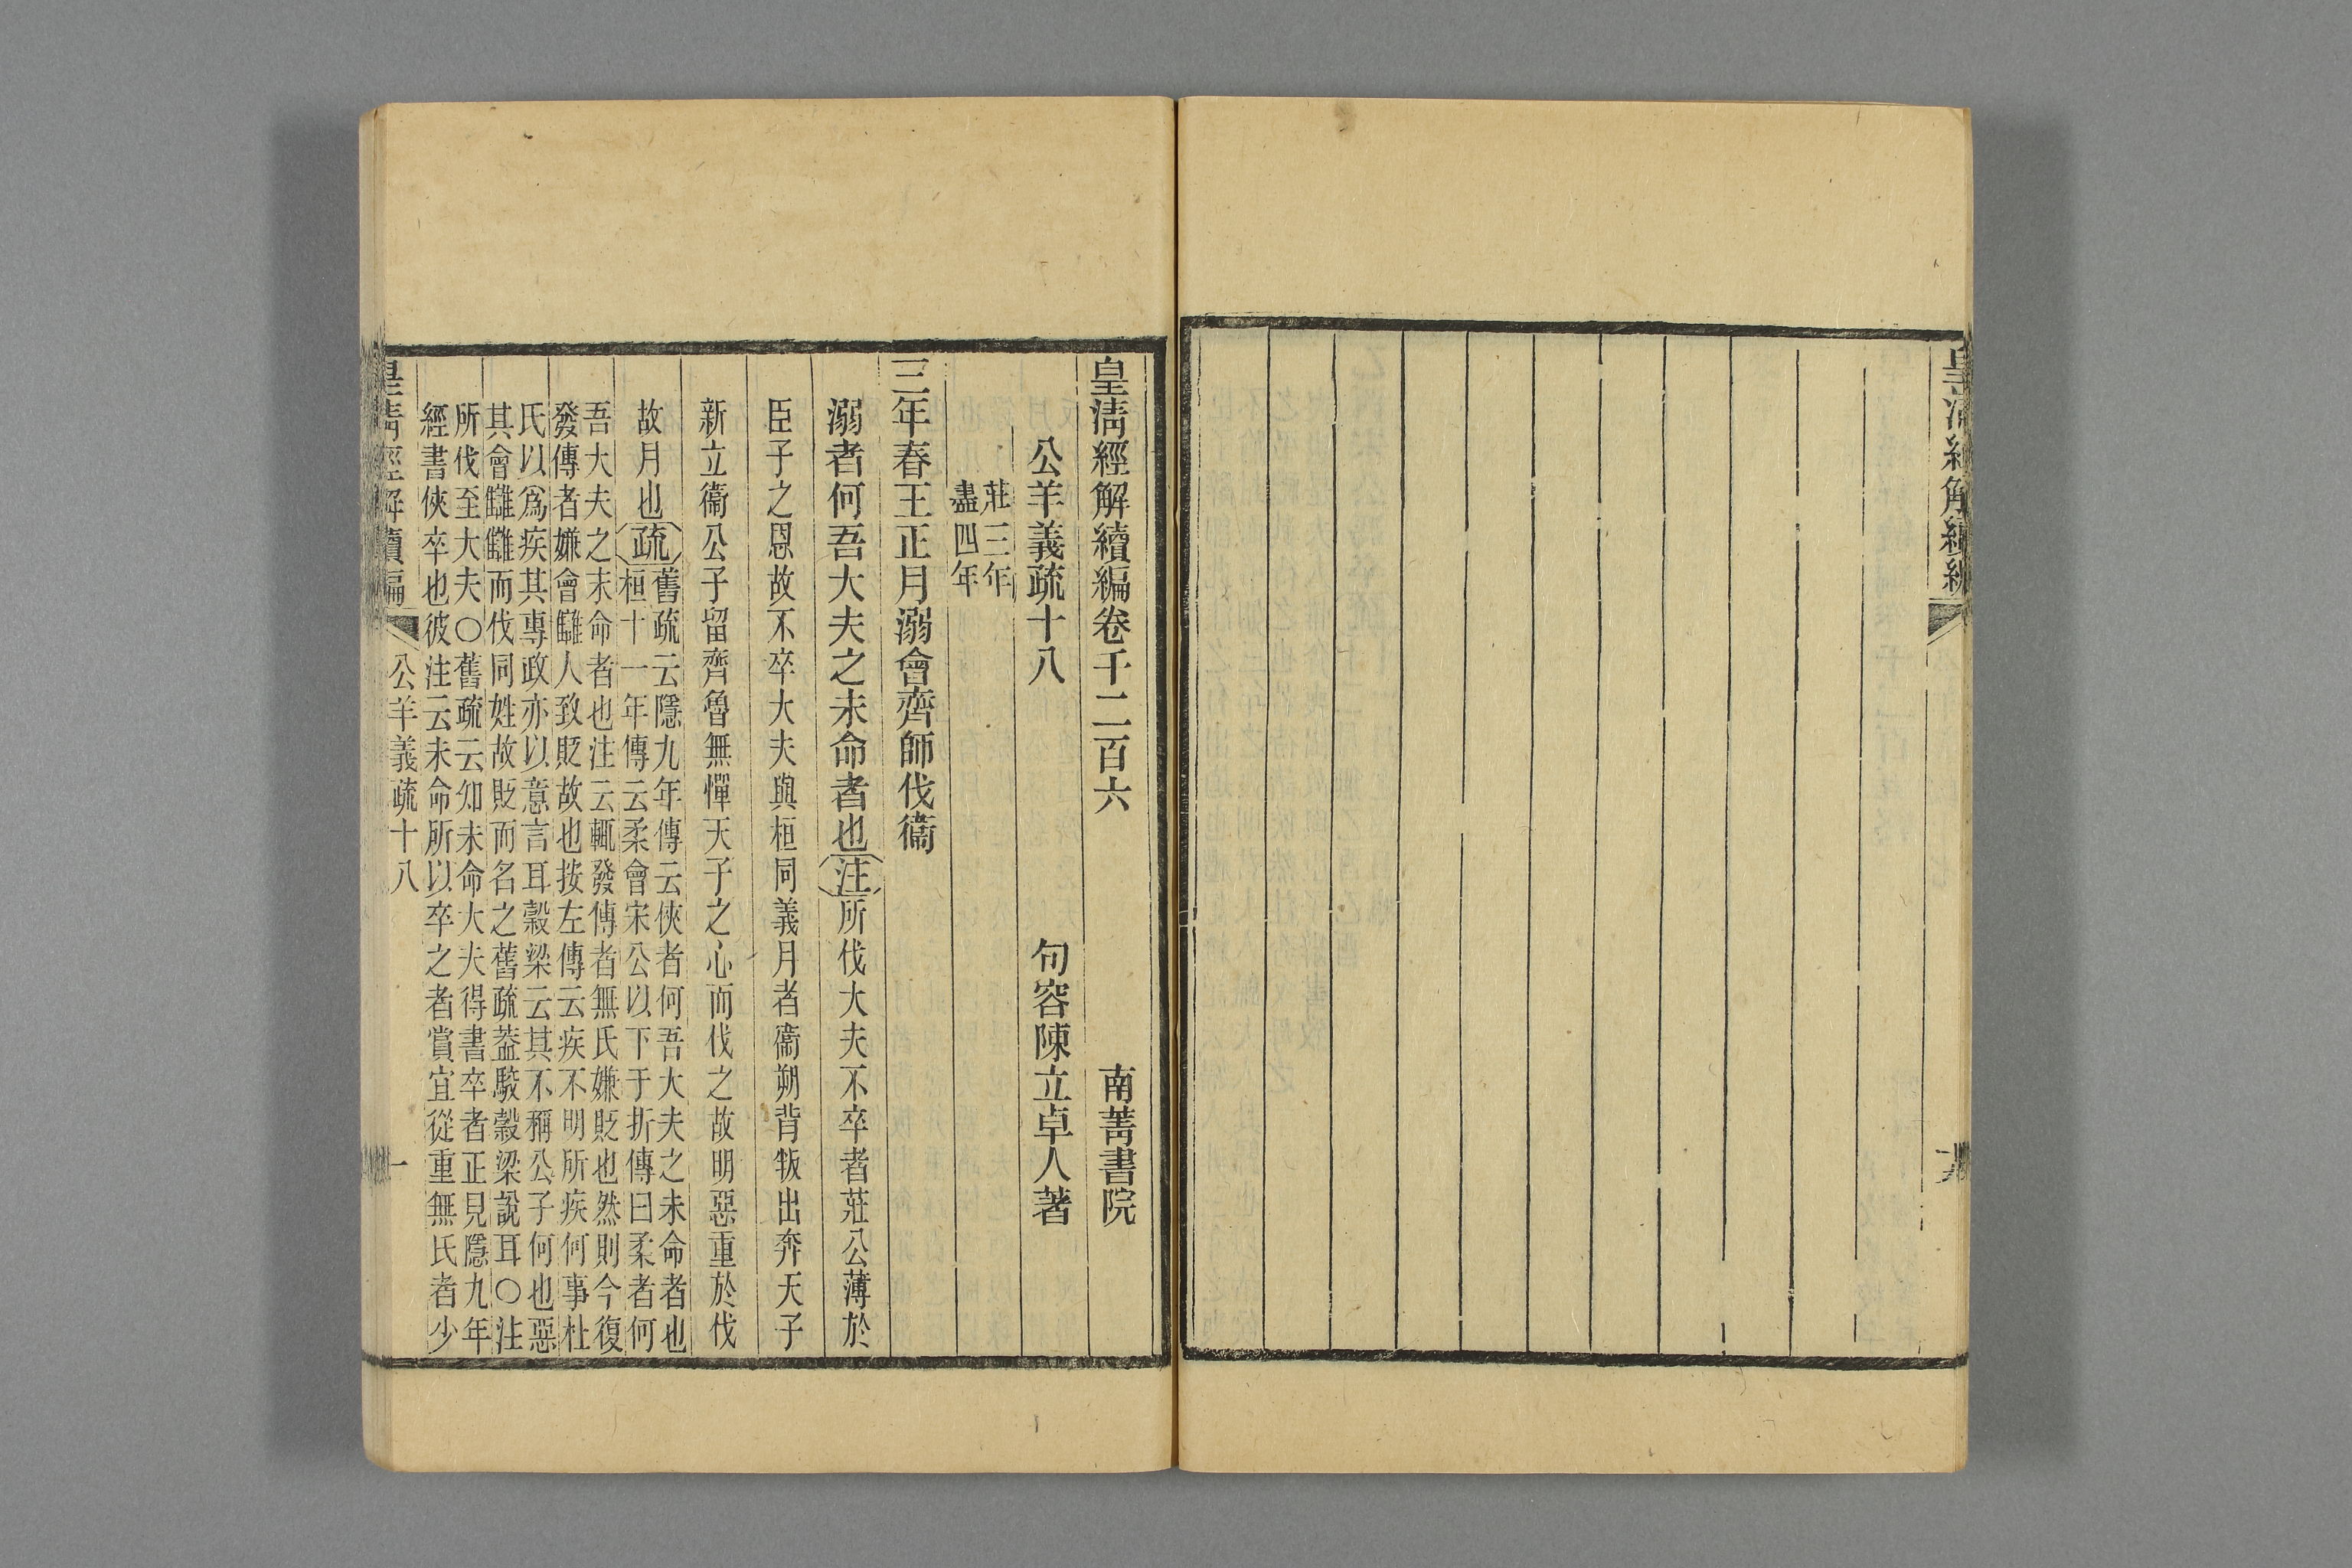 皇清經解續編
皇清經解續編卷千二百六
南菁書院
公羊義疏十八
句容陳立卓人著
莊三年
盡四年
三年春王正月溺會齊師伐衞
溺者何吾大夫之未命者也
注
所伐大夫不卒者莊公薄於
臣子之恩故不卒大夫與桓同義月者衞朔背叛出奔天子
新立衞公子留齊魯無憚天子之心而伐之故明惡重於伐
故月也
疏
舊疏云隱九年傳云俠者何吾大夫之未命者也
桓十一年傳云柔會宋公以下于折傳曰柔者何
吾大夫之未命者也注云輒發傳者無氏嫌貶也然則今復
發傳者嫌會讎人致貶故也按左傳云疾不明所疾何事杜
氏以爲疾其專政亦以意言耳穀梁云其不稱公子何也惡
其會讎讎而伐同姓故貶而名之舊疏蓋駮穀梁說耳〇注
所伐至大夫〇舊疏云知未命大夫得書卒者正見隱九年
經書俠卒也彼注云未命所以卒之者賞宜從重無氏者少
皇清經解續編
公羊義疏十八
一